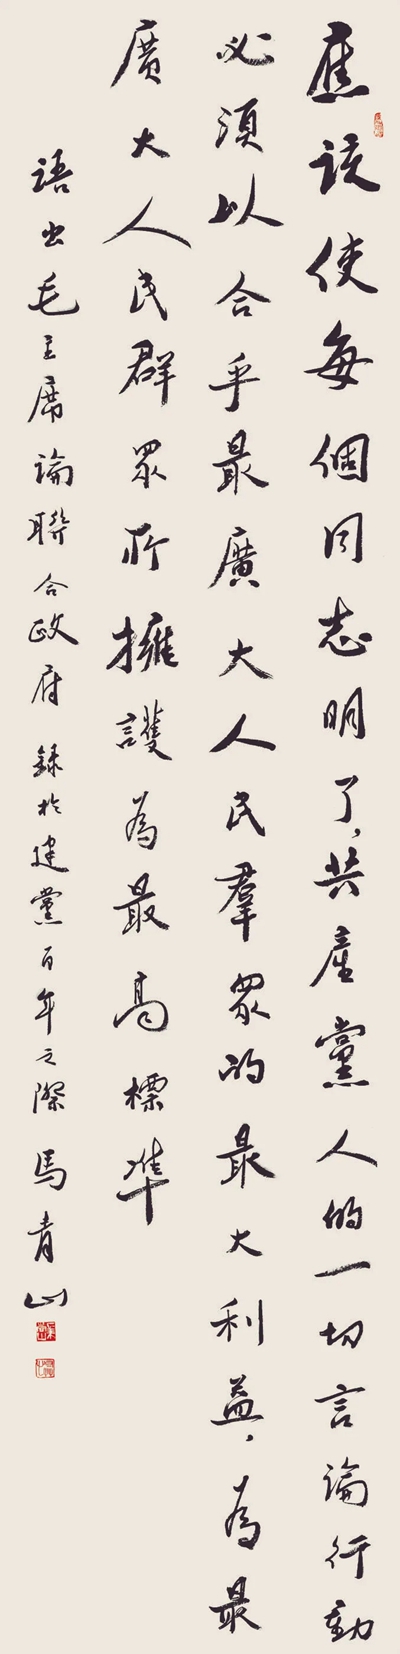 應該使每個同志明了，共產黨人的一切言論行動
必須以合乎最廣大人民羣眾的最大利益，為最
廣大人民群眾所擁護為最高標準
語出毛主席論聯合政府 錄於建黨百年之際 馬青山